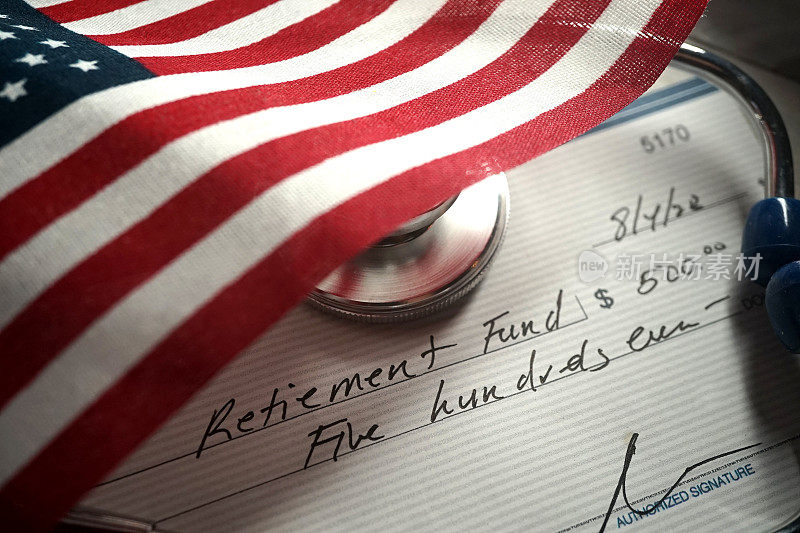 5170
8/4/22
$ 500.00
Retirement Fund
Five hundreds even
DO
AUTHORIZED SIGNATURE
new 新图视觉